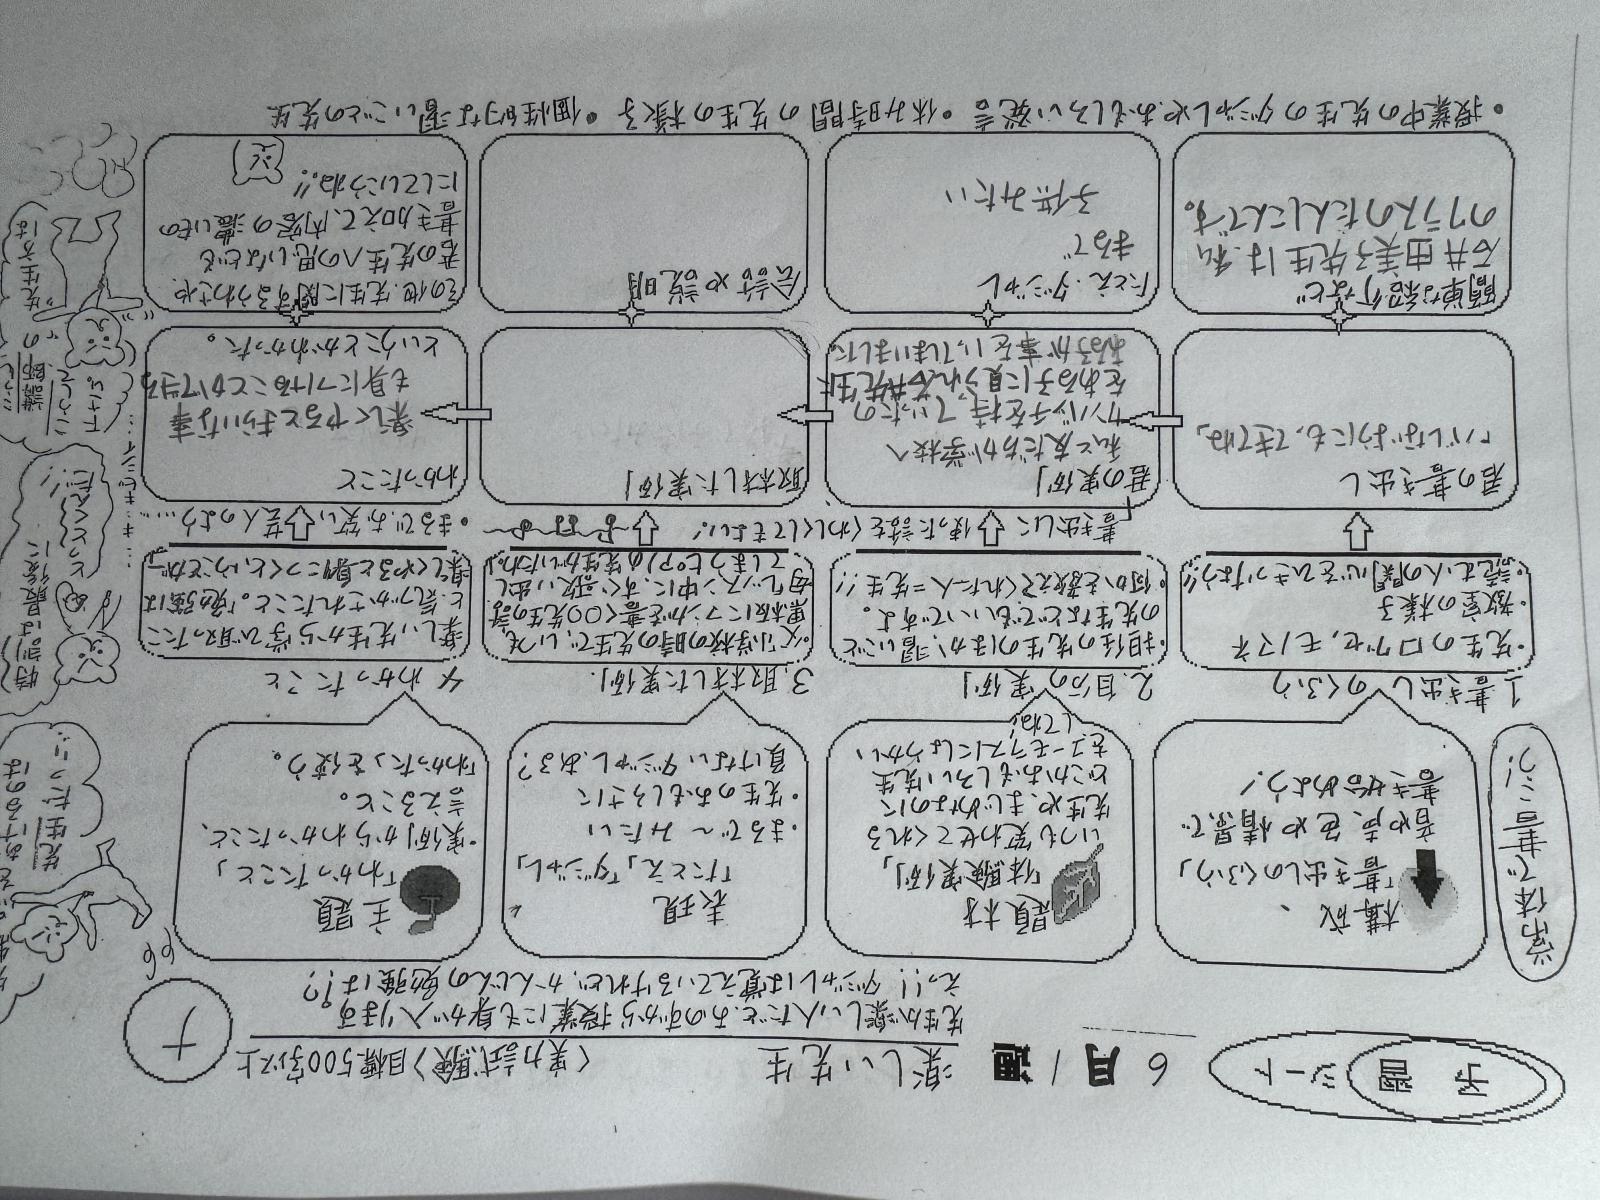 予習シート
6月1週
楽しい先生
〈実力試験〉目標500字以上
ナ
先生が楽しい人だと、おのずから授業にも身が入ります。
えっ!!ダジャレは覚えているけれど、かんじんの勉強は??
常体で書こう!
構成
「書き出しのくふう」
音や声、色や情景で
書き始めよう!
題材
「体験実例」
いつも笑わせてくれる
先生や、まじめなのに
どこかおもしろい先生
をユーモラスにしょうかい
してね!
表現
「たとえ」「ダジャレ」
・まるで〜みたい
・先生のおもしろさに
負けないダジャレ、ある?
主題
「わかったこと」
・実例からわかったこと、
言えること。
「わかった」を使う。
1.書き出しのくふう
・先生の口グセ、モノマネ
・教室の様子
・読む人の関心をひきつけよう!!
2.自分の実例
・担任の先生のほか、習いごと
の先生などでもいいですよ。
・何かを教えてくれた人=先生!!
3.取材した実例
・父「小学校の時の先生で、いつも
黒板にマンガを書く〇〇先生の話
・母「レッスン中に、すぐ歌い出し
てしまうピアノの先生がいたわ。」
4.わかったこと
・楽しい先生から学び取ったこ
と、気づかされたこと。「勉強は
楽しくやると身につくということが〜」
書き出しに使った話をくわしくしてもよい!
・まるで、お笑い芸人のよう……
君の書き出し
「バレないようにも、できてね」
君の実例
私と友だちが学校へ
をある子に見られ、石井先生に
ある子が事をいってしまいました
取材した実例
わかったこと
楽しくやるときらいな事
も身につけることができる
ということがわかった。
簡単な紹介など
石井由美子先生は、私
のクラスのたんにんです。
たとえ・ダジャレ
まるで
子供みたい
会話や説明
その他、先生に関するうわさや、
君の先生への思いなどを
書き加えて、内容の濃いもの
にしていこうね!!
・授業中の先生のダジャレやおもしろい発言・休み時間の先生の様子・個性的な習いごとの先生